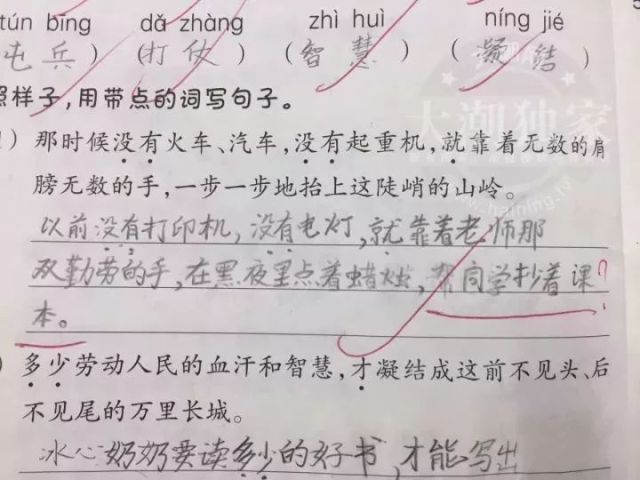 tún bīng dǎ zhàng zhì huì níng jié
屯兵) (打仗) (智慧) (凝结)
照样子,用带点的词写句子。
) 那时候没有火车、汽车,没有起重机,就靠着无数的肩
膀无数的手,一步一步地抬上这陡峭的山岭。
以前没有打印机,没有电灯,就靠着老师那
双勤劳的手,在黑夜里点着蜡烛,帮同学抄着课?
本。
) 多少劳动人民的血汗和智慧,才凝结成这前不见头、后
不见尾的万里长城。
冰心奶奶要读多少的好书,才能写出
大潮独家
www.haining.tv